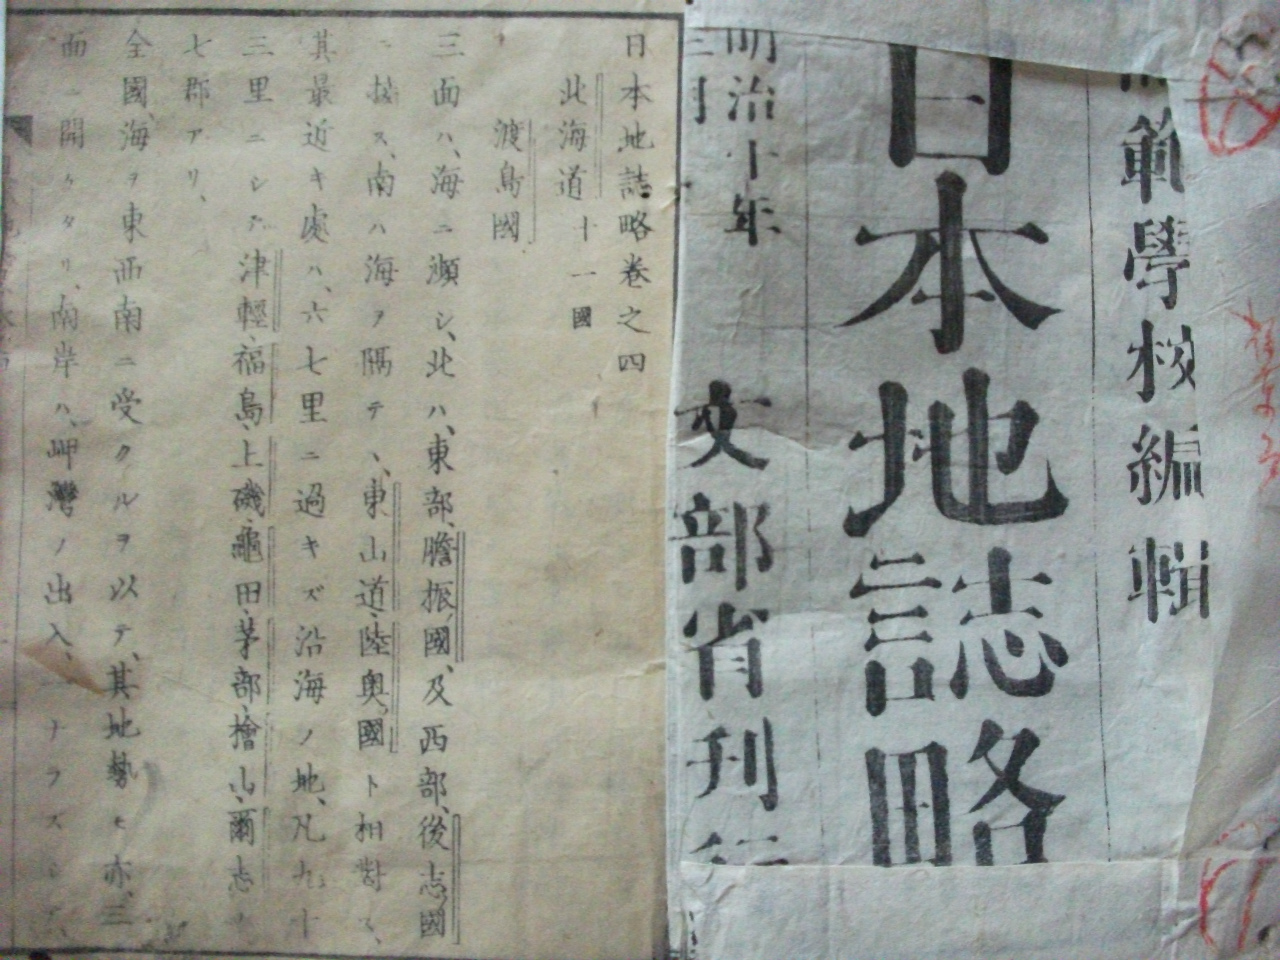 範學校編輯
日本地誌略
明治十年
文部省刊行
日本地誌略卷之四
北海道十一國
渡島國
三面ハ、海ニ瀕シ、北ハ、東部、膽振國、及西部、後志國
ニ接ス、南ハ海ヲ隔テヽ、東山道、陸奧國ト相對ス、
其最近キ處ハ、六七里ニ過キズ沿海ノ地、凡九十
三里ニシテ津輕、福島、上磯、龜田、茅部、檜山、爾志ノ
七郡アリ、
全國、海ヲ東西南ニ受クルヲ以テ、其地勢モ亦、三
面ニ開ケタリ、南岸ハ、岬灣ノ出入、一ナラズシテ、